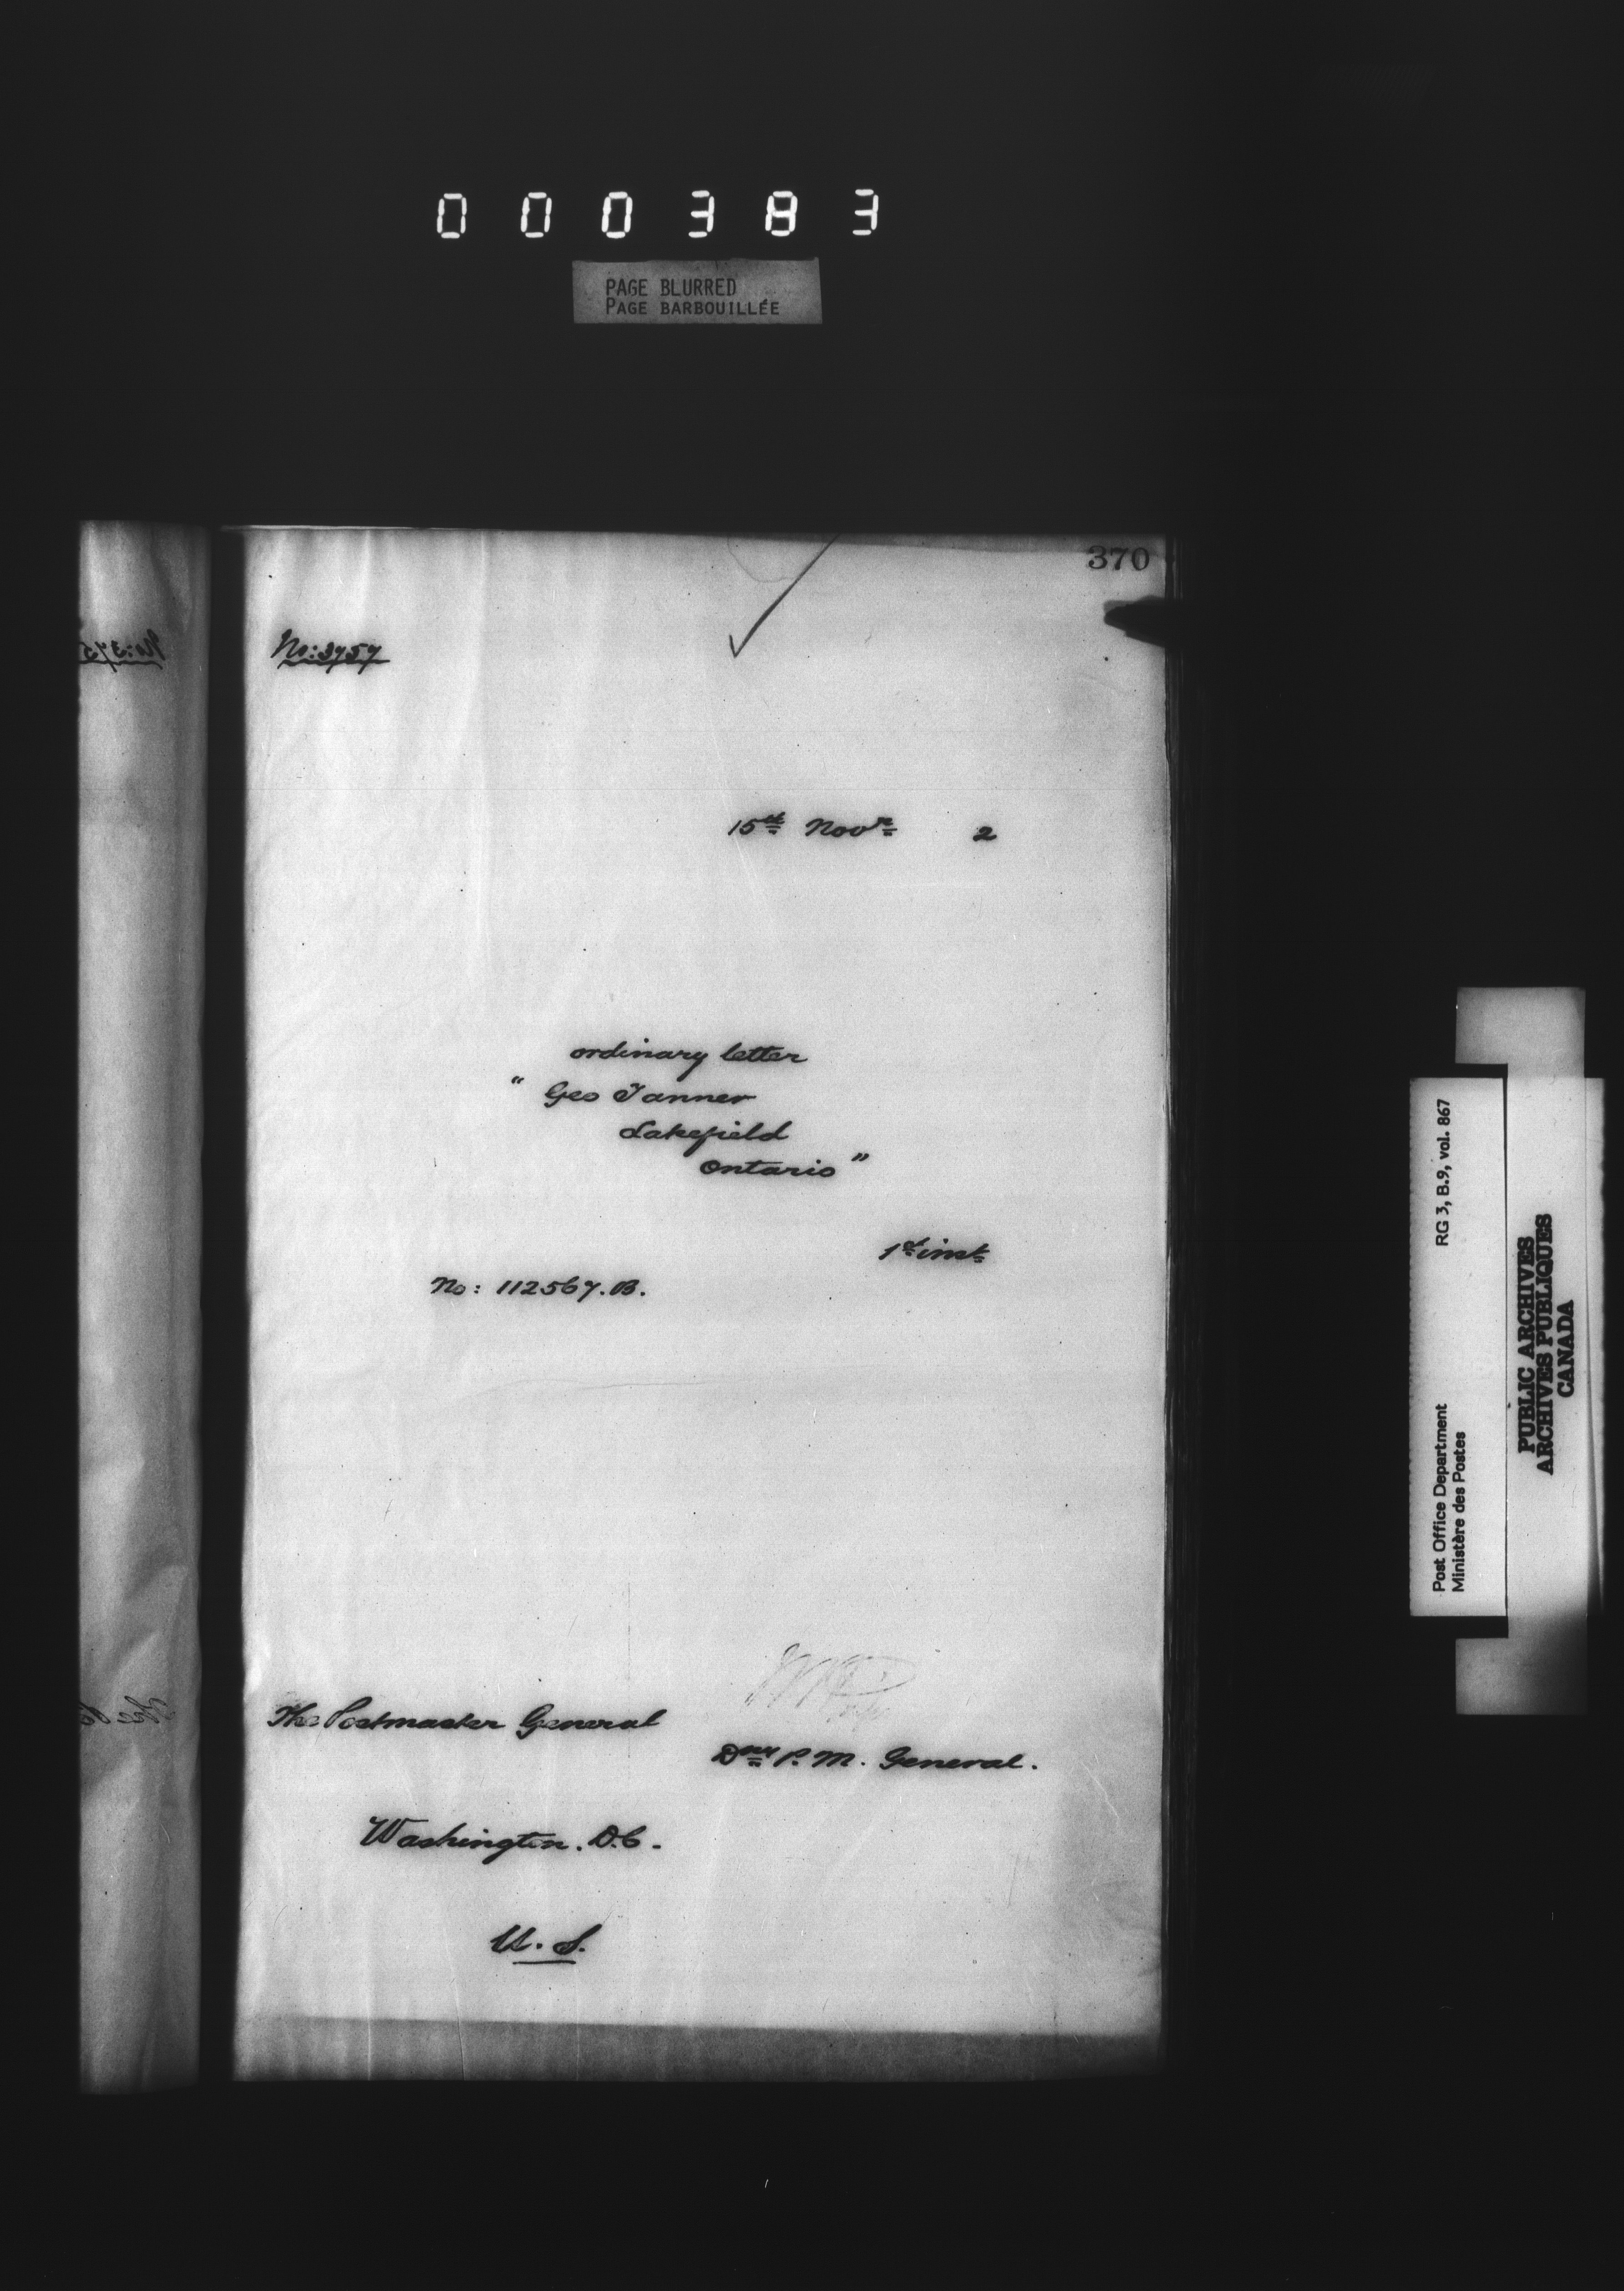 0 0 0 3 8 3
PAGE BLURRED
PAGE BARBOUILLÉE
370
No: 3757
15th Novr 2
ordinary letter
" Geo Tanner
Lakefield
Ontario "
1st inst
No: 112567. B.
The Postmaster General
Dpy P. M. General.
Washington. D.C.
U. S.
Post Office Department
Ministère des Postes
RG 3, B.9, vol. 867
PUBLIC ARCHIVES
ARCHIVES PUBLIQUES
CANADA